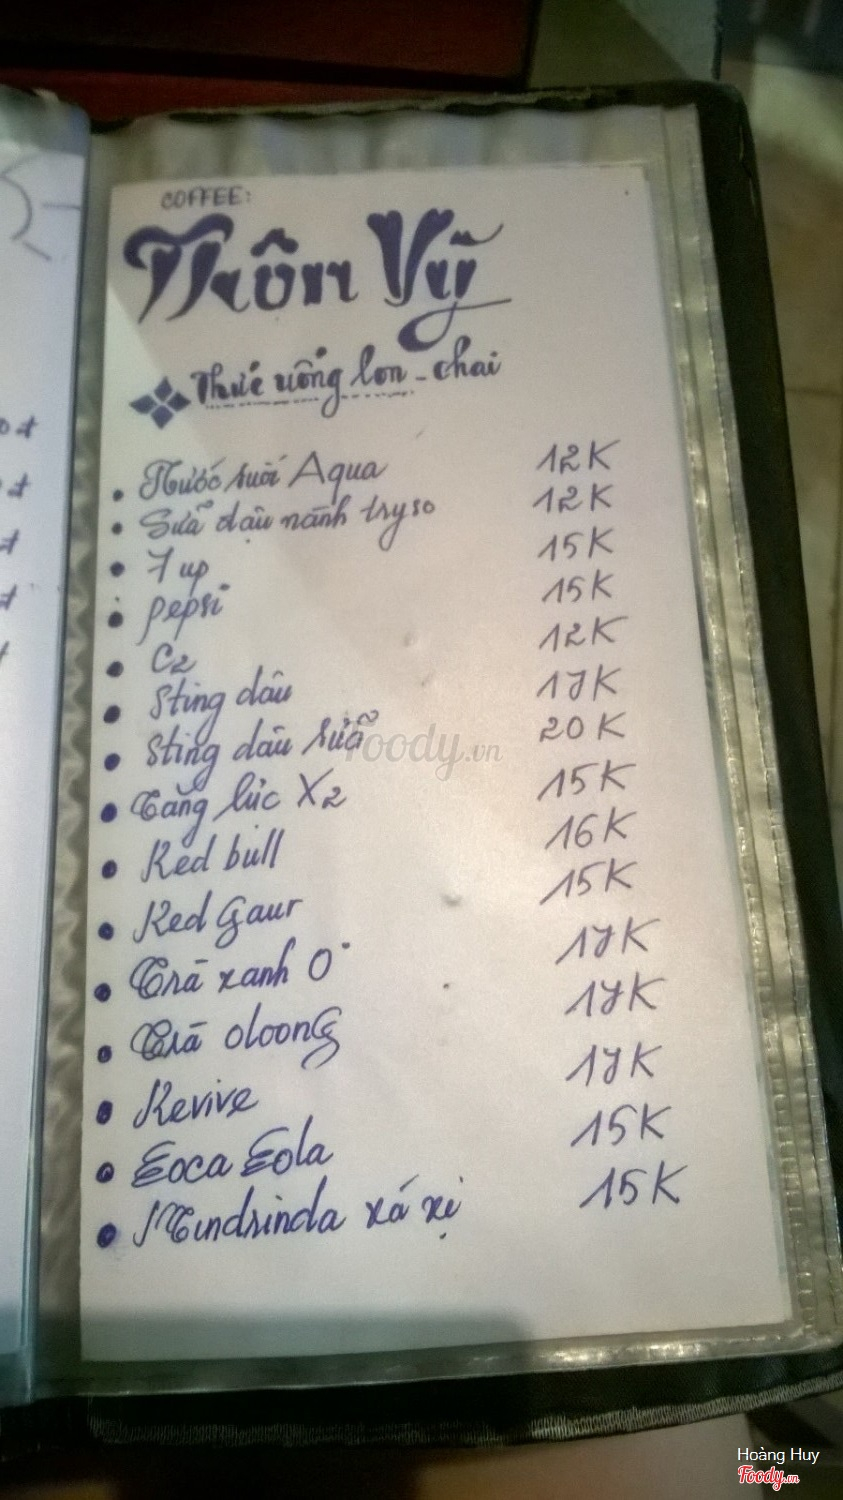 COFFEE:
Thôn Vỹ
Thức uống lon - chai
Nước suối Aqua 12K
Sữa đậu nành tryso 12K
7 up 15K
pepsi 15K
C2 12K
Sting dâu 17K
Sting dâu sữa 20K
Tăng lực X2 15K
Red bull 16K
Red Gaur 15K
Trà xanh 0° 17K
Trà OloonG 17K
Revive 17K
Coca Cola 15K
Mindrinda xá xị 15K
foody.vn
Hoàng Huy
Foody.vn